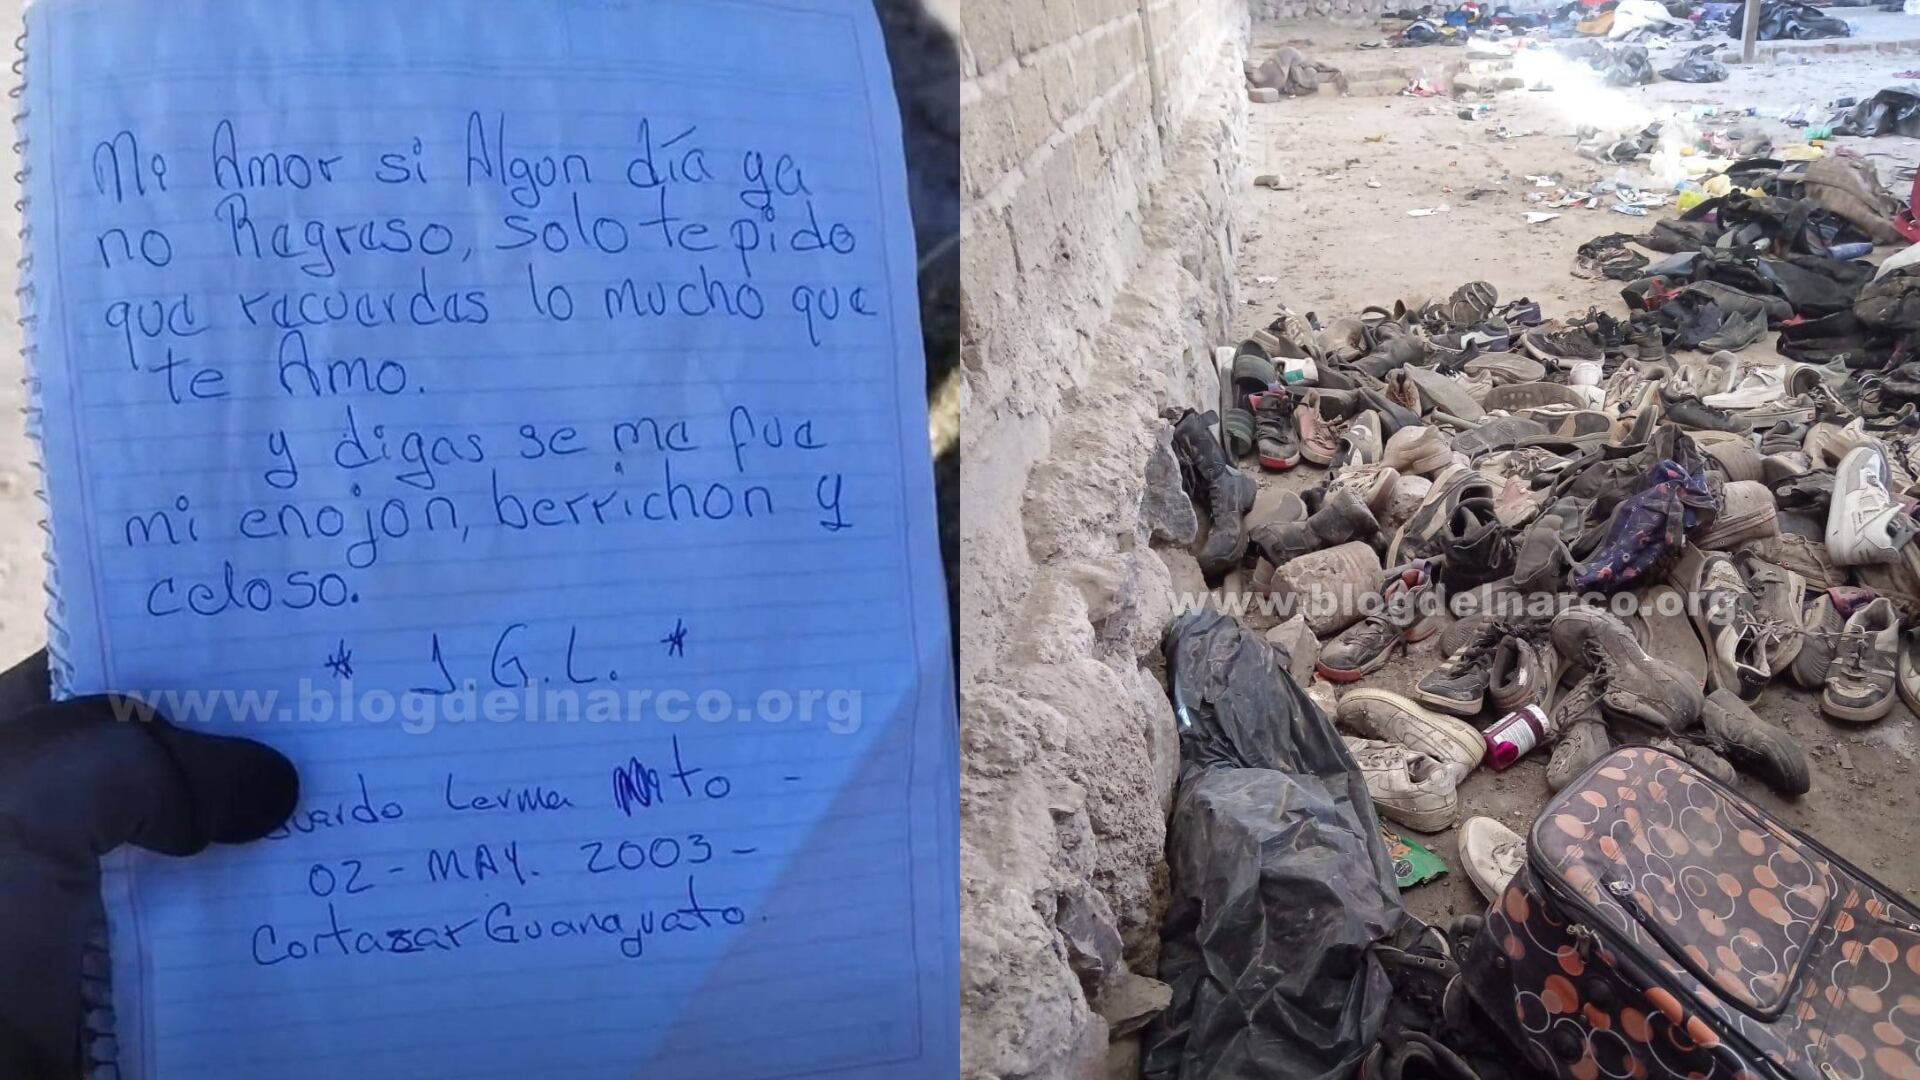 Mi Amor si Algun día ya
no Ragraso, solo te pido
que racuerdas lo mucho que
te Amo.
y digas se me fue
mi enojon, berrichon y
celoso.
* J.G.L. *
www.blogdelnarco.org
Lerma
02 - MAY. 2003 -
Cortazar Guanajuato.
www.blogdelnarco.org